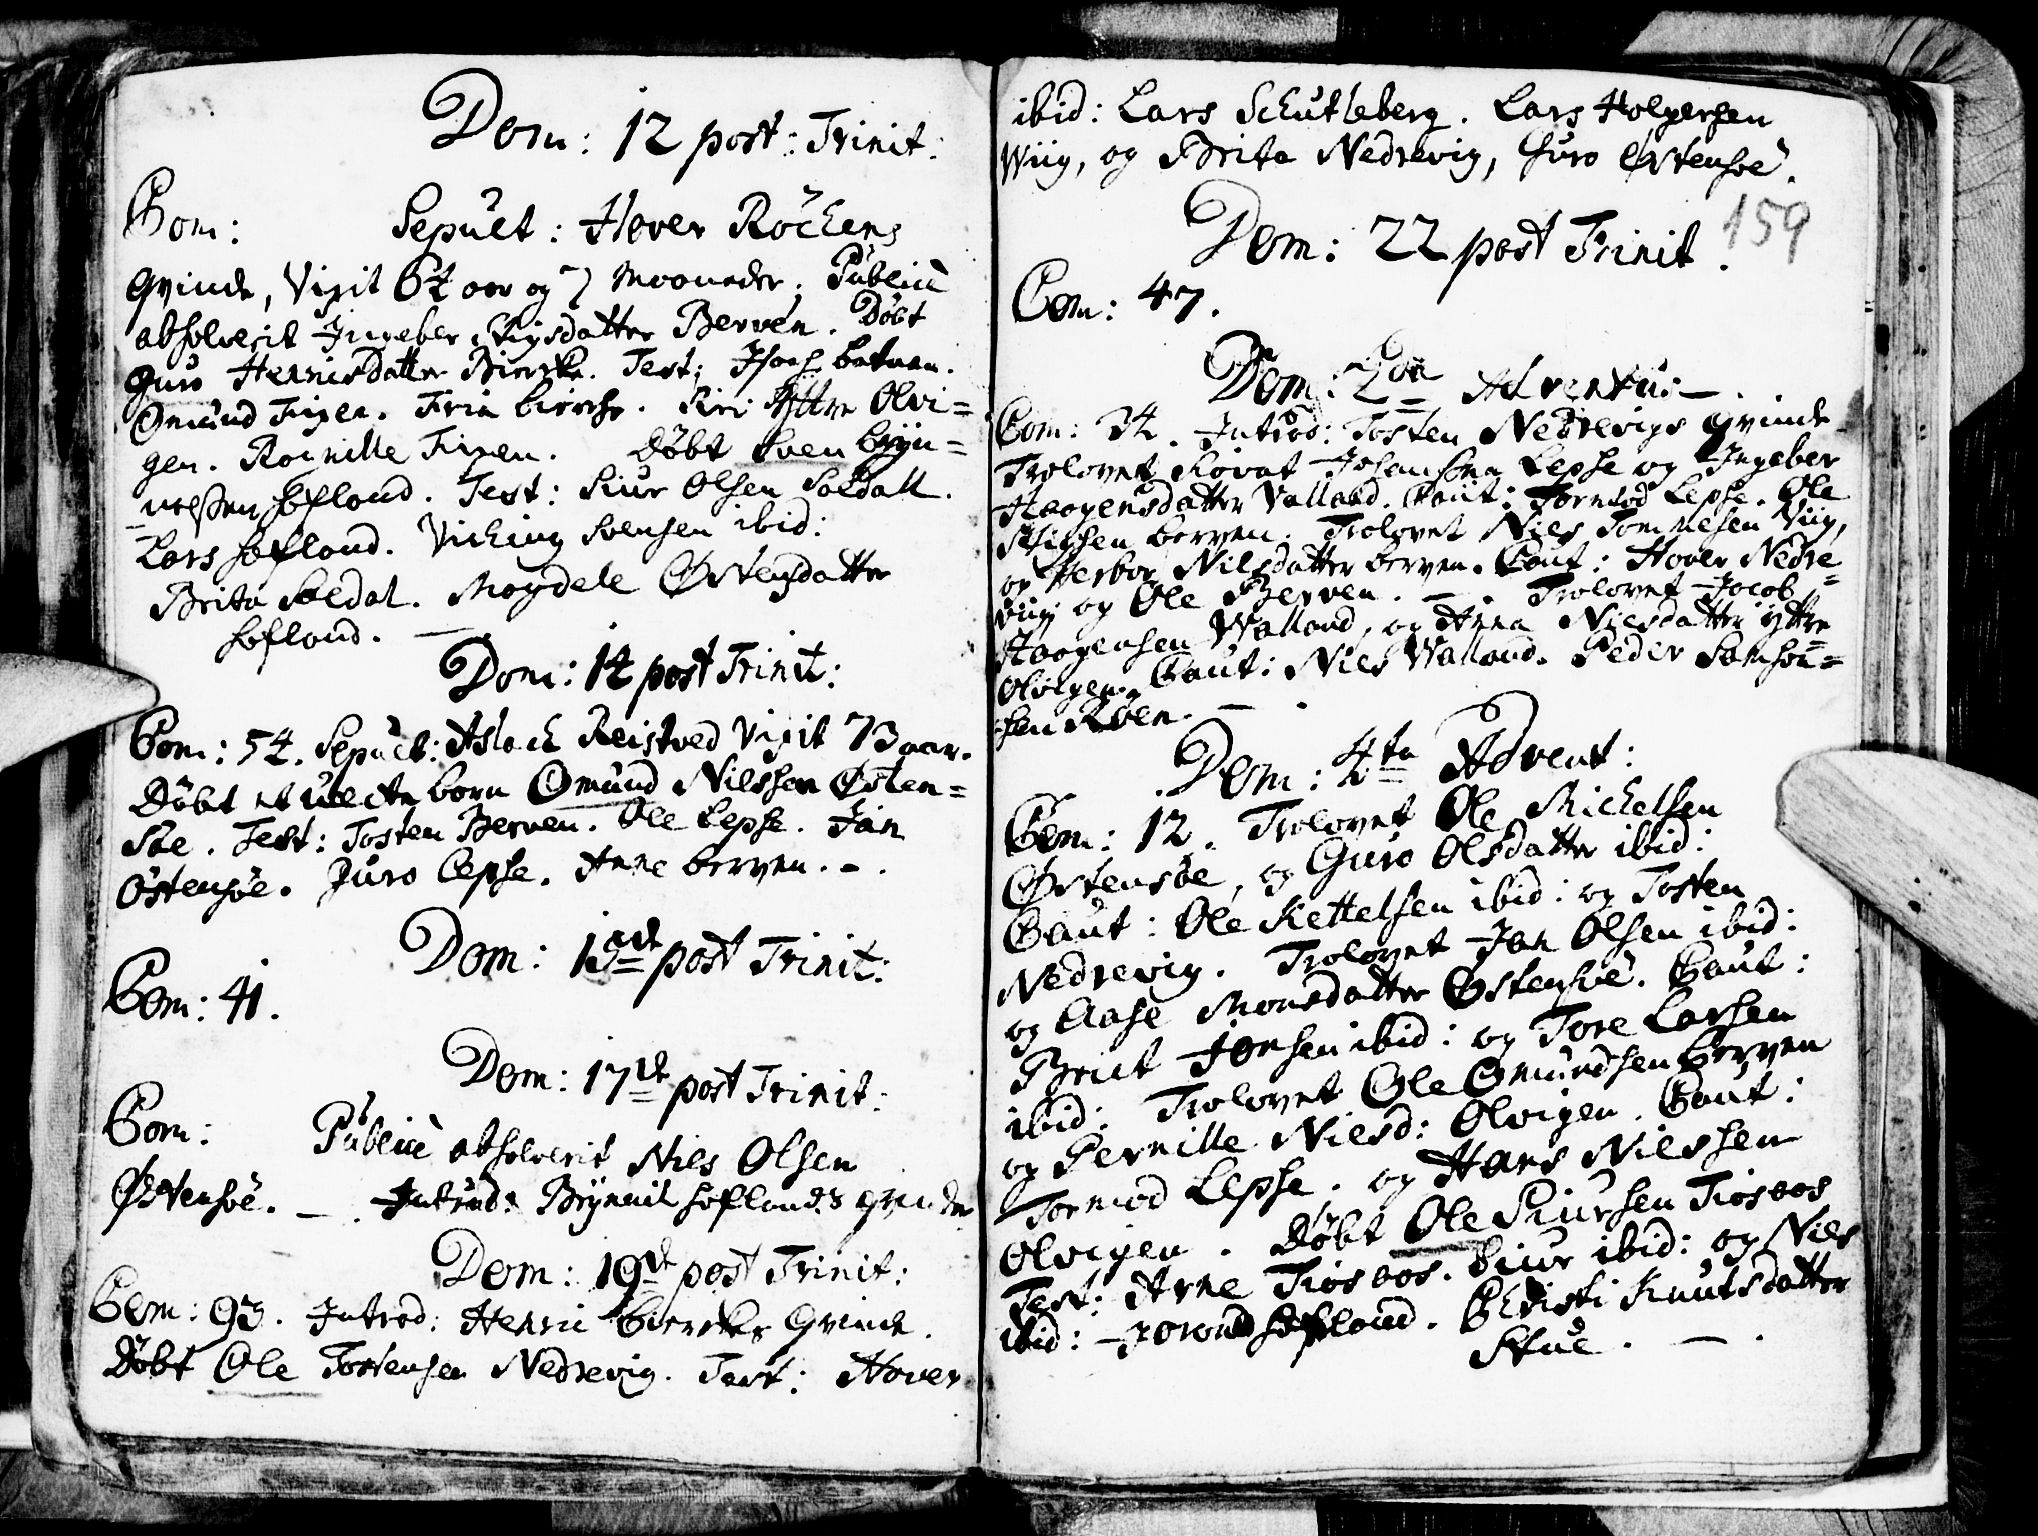 Dom: 12 post: Trinit:
Com: Sepult: Hover Röckens
Qvinde, Vixit 64 aar og 7 Maaneder. Publice
absolverit Ingeber Datter Berven. Döbt
Guro Henricsdatter Biercke. Test: Isach Botnen.
Omund Fixen. Kiri Yttre Olvi=
gen. Rognille Fixen. Döbt Sven Bryn=
nelssen Sofland. Test: Siur Olsen Soldall.
Lars Sofland. Viching Svensen ibid:
Brita Soldal. Magdele Östensdatter
Sofland. —
Dom: 14 post Trinit:
Com: 54. Sepult: Aslach Reistved Vixit 73 aar.
Döbt et uecte born Omund Nilssen Östen=
söe. Test: Tosten Berven. Ole Lepse. Jan
Östensöe. Guro Lepse. Anne Berven. — .
Dom: post Trinit:
Com: 41.
Dom: 17de post Trinit:
Com: Publice absolverit Niels Olsen
Östensöe. — . Introd: Brynnil Soflands Qvinde
Dom: 19de post Trinit:
Com: 93. Introd: Henric Bierckes Qvinde.
Döbt Ole Tostensen Nedrevig. Test: Hover
ibid: Lars Schutleberg. Lars Holgersen
Wiig, og Brita Nedrevig, Guro Östensöe.
159
Dom: 22 post Trinit.
Com: 47.
Dom: 2da Adventus — .
Com: 34. Introd: Tosten Nedrevigs Qvinde
Trolovet Johansen Lepse og Ingeber
Haagensdatter Valland. Caut: Tormod Lepse. Ole
Berven. Trolovet Niels Tommesen Viig,
og Herbor Nilsdatter Berven. Caut: Hover Nedre=
viig og Ole Berven. — . Trolovet Jacob
Haagensen Walland, og Anna Nielsdatter Yttre
Olvigen. Caut: Niels Walland. Peder Samson=
sen Röen. — .
Dom: 4ta Advent:
Com: 12. Trolovet Ole Michelsen
Östensöe, og Guro Olsdatter ibid:
Caut: Ole Kettelsen ibid: og Tosten
Nedrevig. Trolovet Jan Olsen ibid:
og Aase Monsdatter Östensöe. Caut:
Jonsen ibid: og Tore Larsen
ibid: Trolovet Ole Omundsen Berven
og Pernille Nielsd: Olvigen. Caut:
Tormod Lepse. og Hans Nielssen
Olvigen. Döbt Ole Siursen Tiosaas
Test: Arne Tiosaas. Siur ibid: og Niels
ibid: Joron Sofland. Christi Knutsdatter
Skue. — .